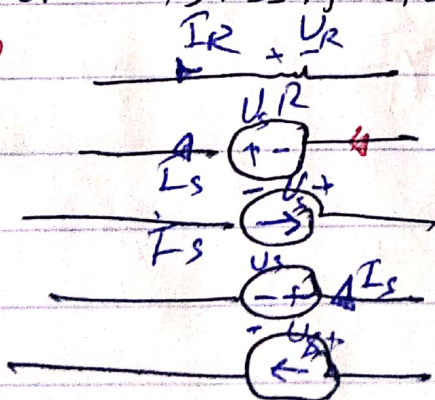 IR UR
+ -
R
Us
+ -
Is
- Us +
Is
Us Is
- +
- Us +